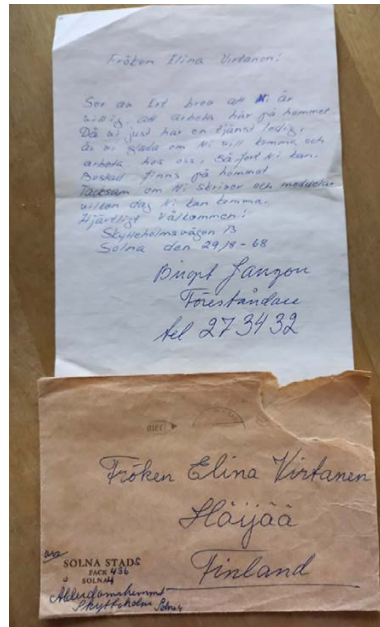 Fröken Elina Virtanen!
Ser av Ert brev att Ni är
villig att arbeta här på hemmet
Då vi just har en tjänst ledig,
är vi glada om Ni vill komma och
arbeta hos oss, så fort Ni kan.
Bostad finns på hemmet
Tacksam om Ni skriver och meddelar
vilken dag Ni kan komma.
Hjärtligt Välkommen!
Skytteholmsvägen 13
Solna den 29/8 - 68
Birgit
Föreståndare
tel 273432
Fröken Elina Virtanen
Höijää
Finland
SOLNA STADS
FACK 436
SOLNA 4
Ålderdomshemmet
Skytteholm Solna